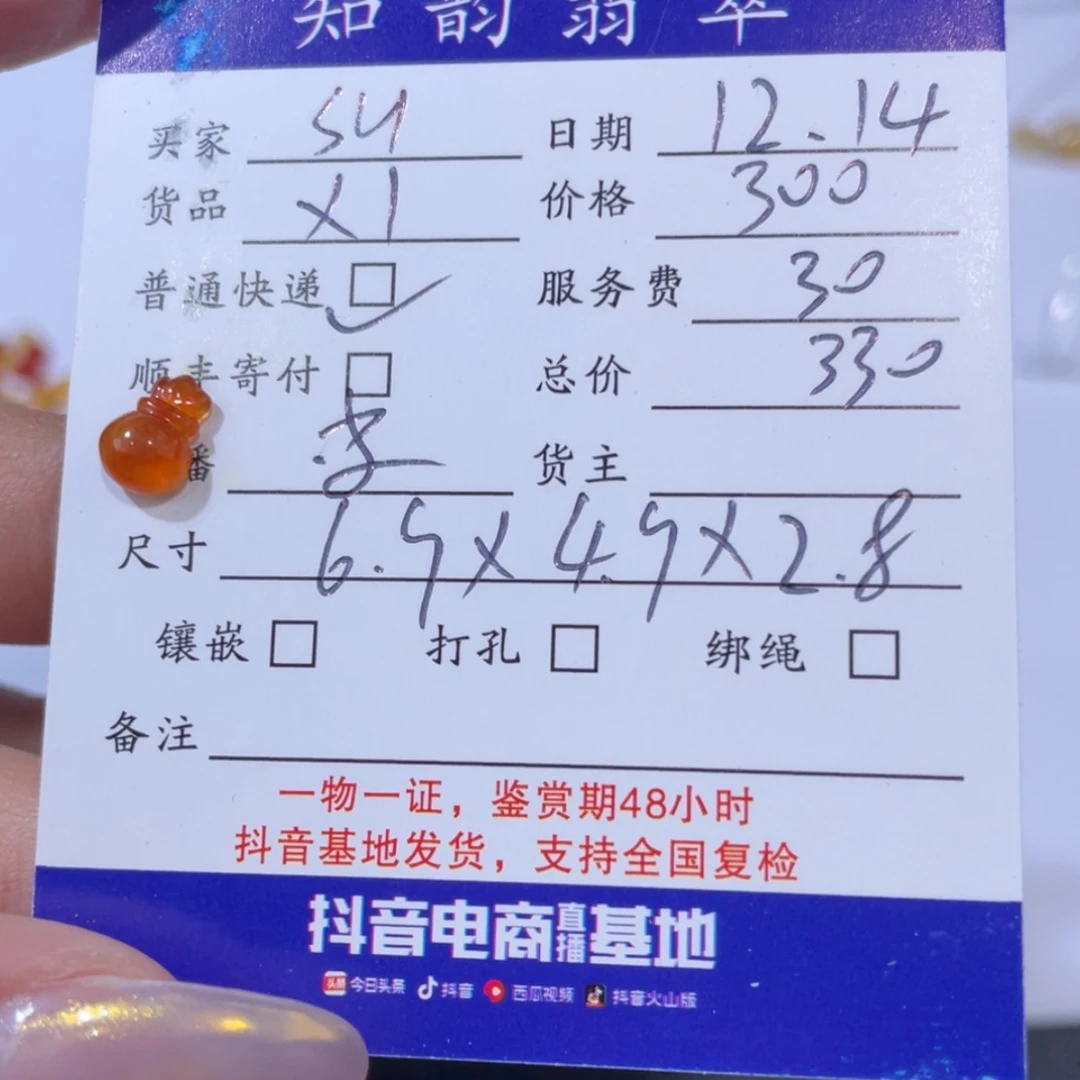 知韵翡翠
买家 SY 日期 12.14
货品 X1 价格 300
普通快递 服务费 30
顺丰寄付 总价 330
播 李 货主
尺寸 6.9X4.9X2.8
镶嵌 打孔 绑绳
备注
一物一证，鉴赏期48小时
抖音基地发货，支持全国复检
抖音电商直播基地
头条 今日头条 抖音 西瓜视频 抖音火山版